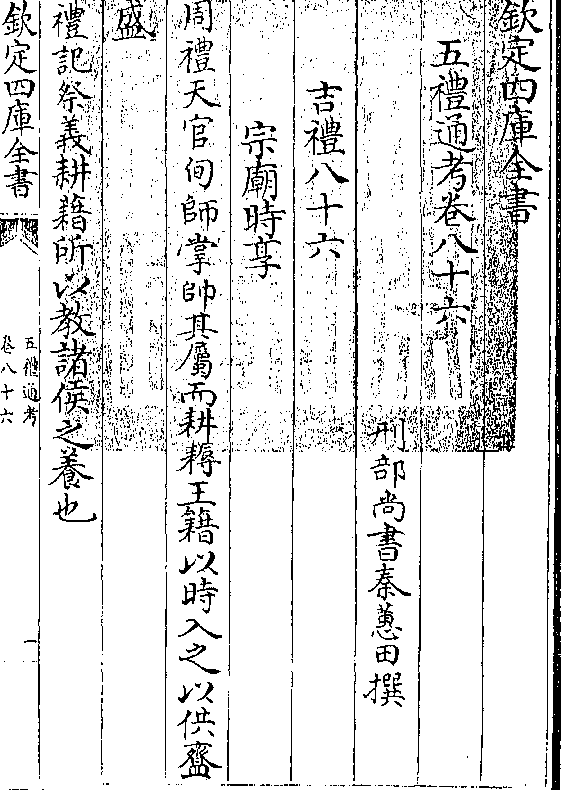 欽定四庫全書
五禮通考卷八十六
刑部尚書秦蕙田撰
吉禮八十六
宗廟時享
周禮天官甸師掌帥其屬而耕耨王籍以時入之以供齍
盛
禮記祭義耕籍所以教諸侯之養也
欽定四庫全書
五禮通考
卷八十六
一